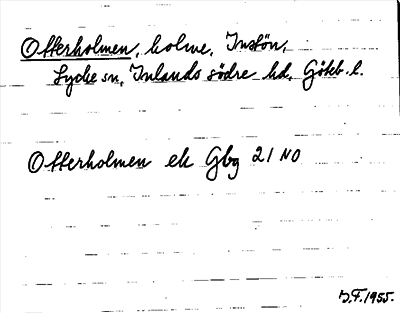 Otterholmen, holme, Instön,
Lycke sn, Inlands södre hd, Göteb. l.
Otterholmen ek Gbg 21 NO
D.F. 1955.